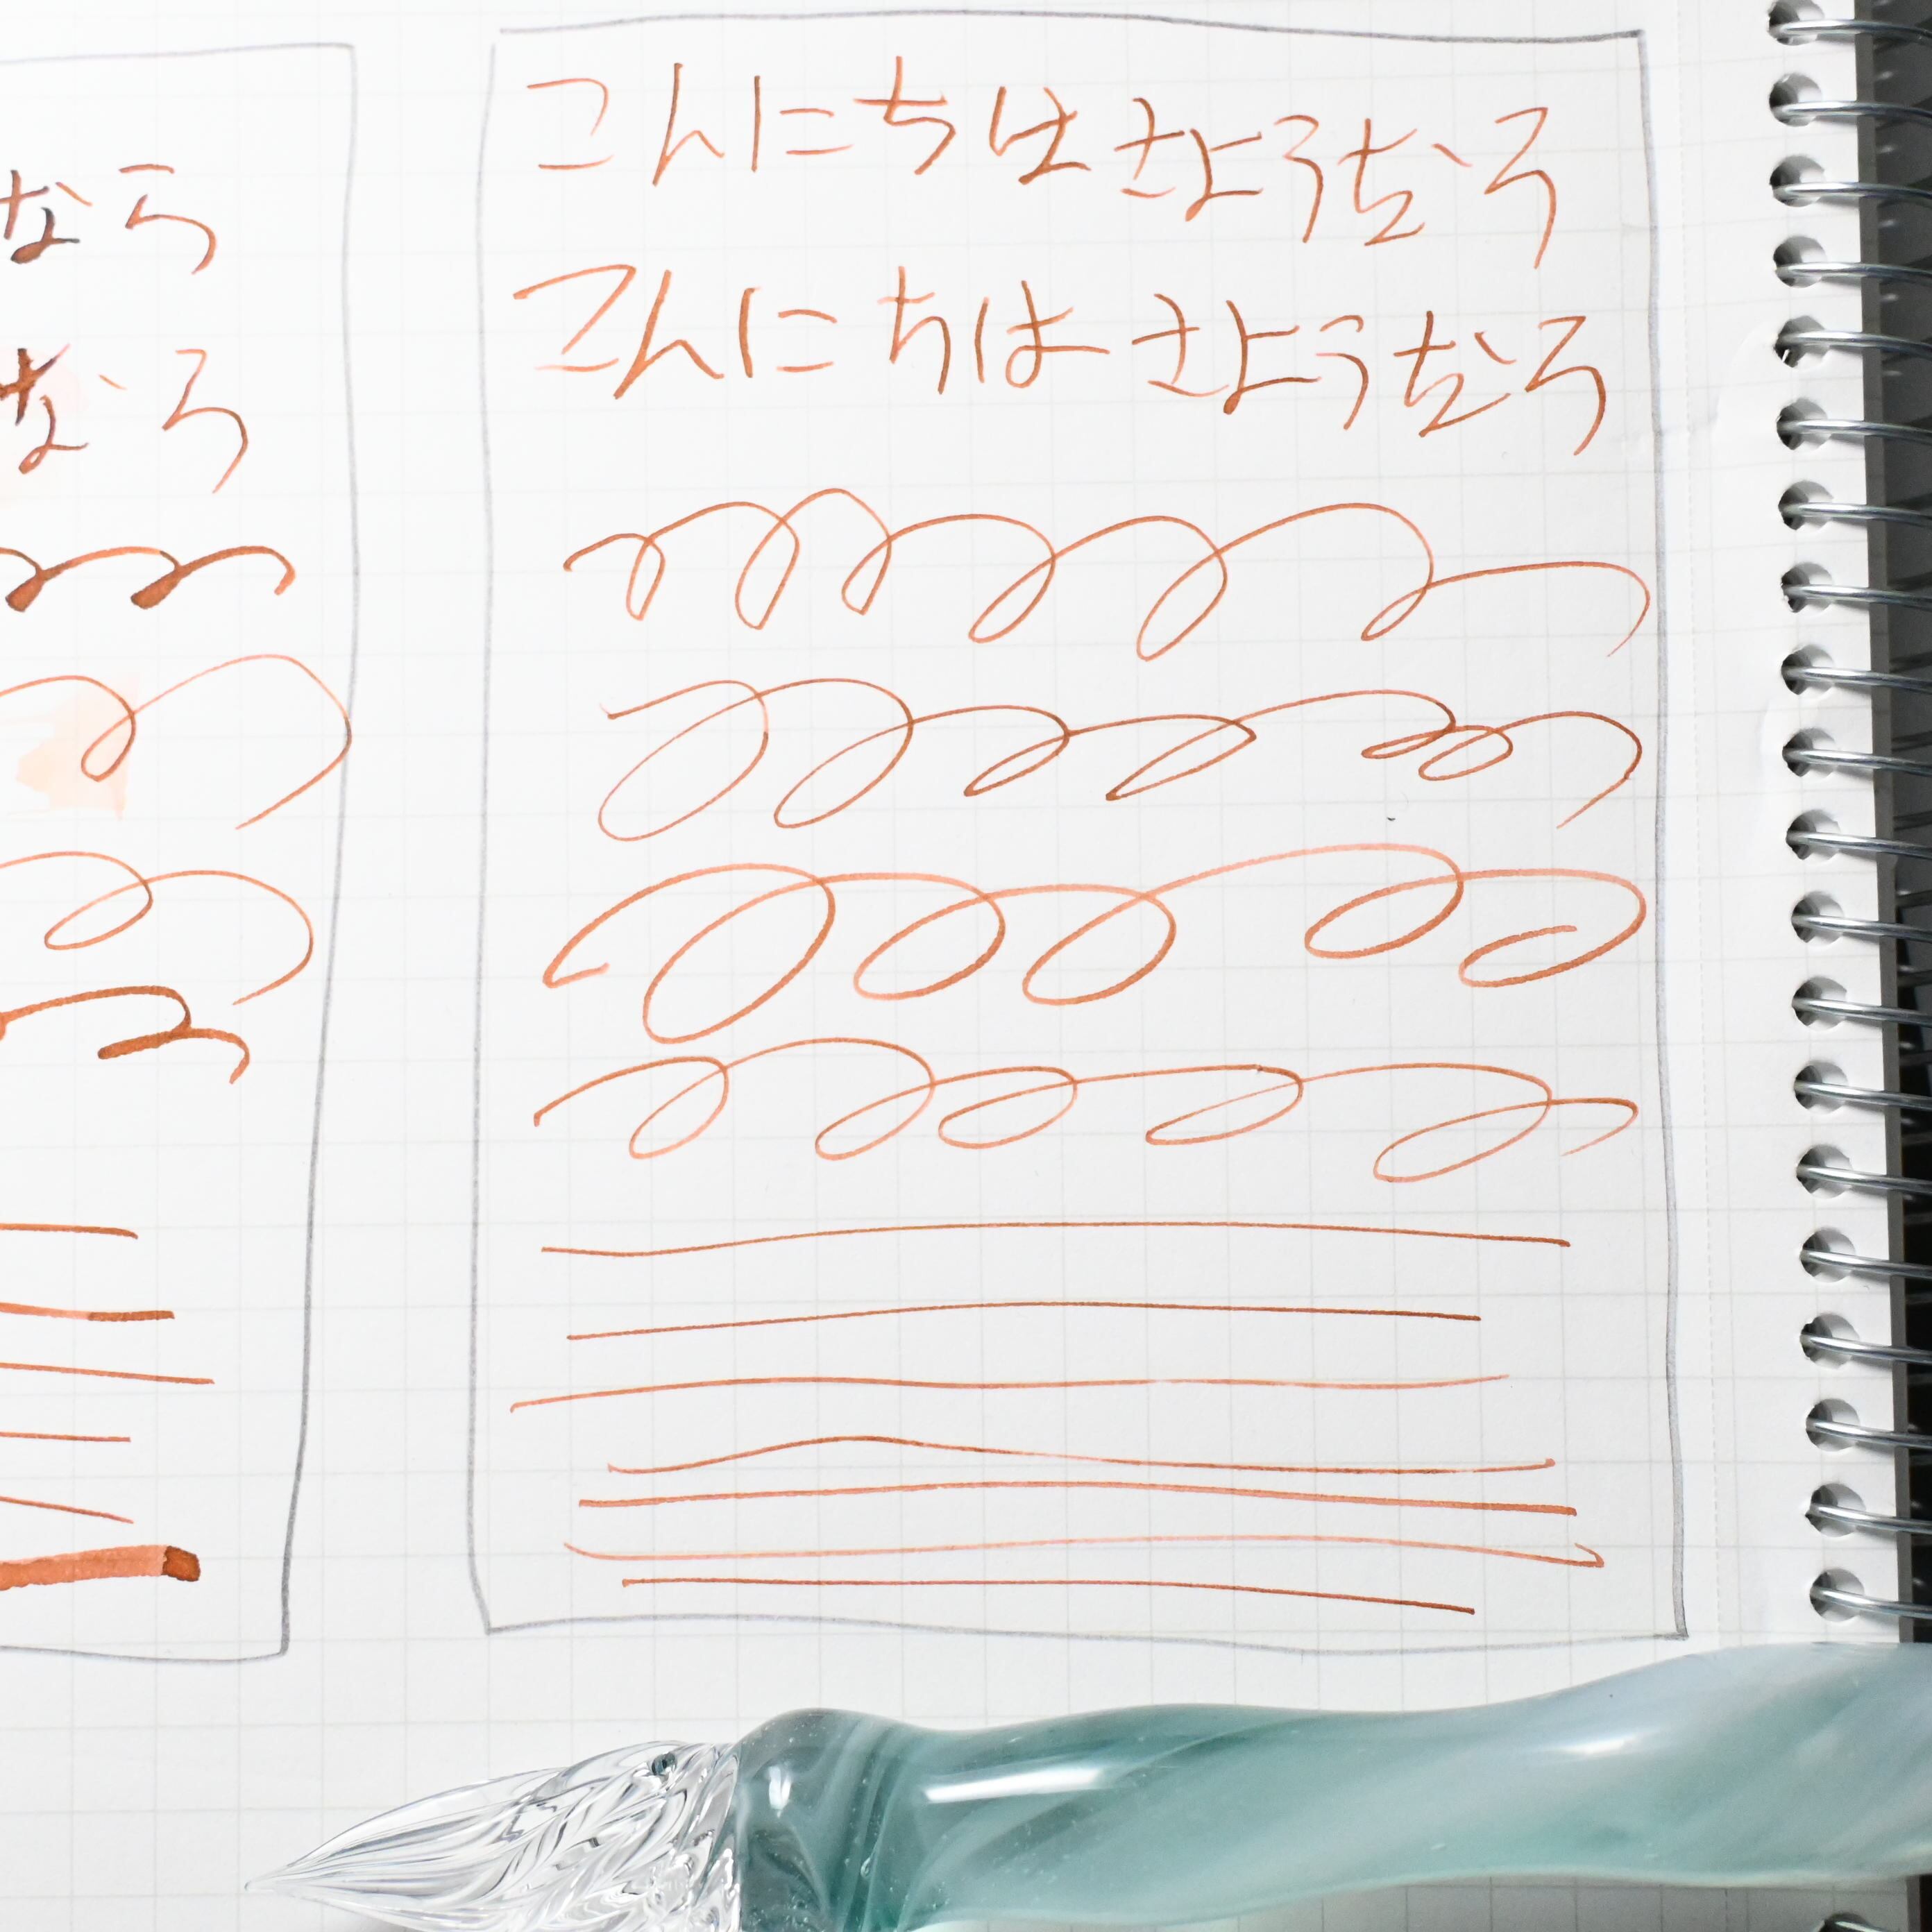 なら
なら
こんにちは さようなら
こんにちは さようなら